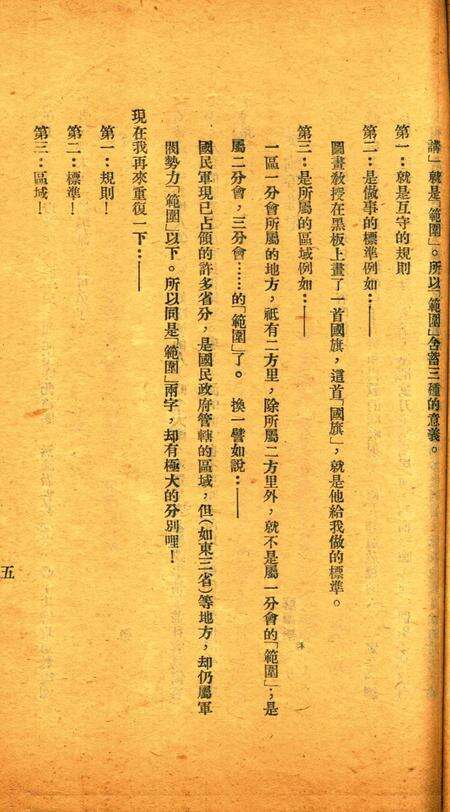 講」就是「範圍」。所以「範圍」含蓄三種的意義。
第一：就是互守的規則
第二：是做事的標準例如：——
圖畫教授在黑板上畫了一首國旗，這首「國旗」，就是他給我做的標準。
第三：是所屬的區域例如：——
一區一分會所屬的地方，祇有二方里，除所屬二方里外，就不是屬一分會的「範圍」；是
屬二分會，三分會……的「範圍」了。換一譬如說：——
國民軍現已占領的許多省分，是國民政府管轄的區域，但（如東三省）等地方，却仍屬軍
閥勢力「範圍」以下。所以同是「範圍」兩字，却有極大的分別哩！
現在我再來重復一下：——
第一：規則！
第二：標準！
第三：區域！
五